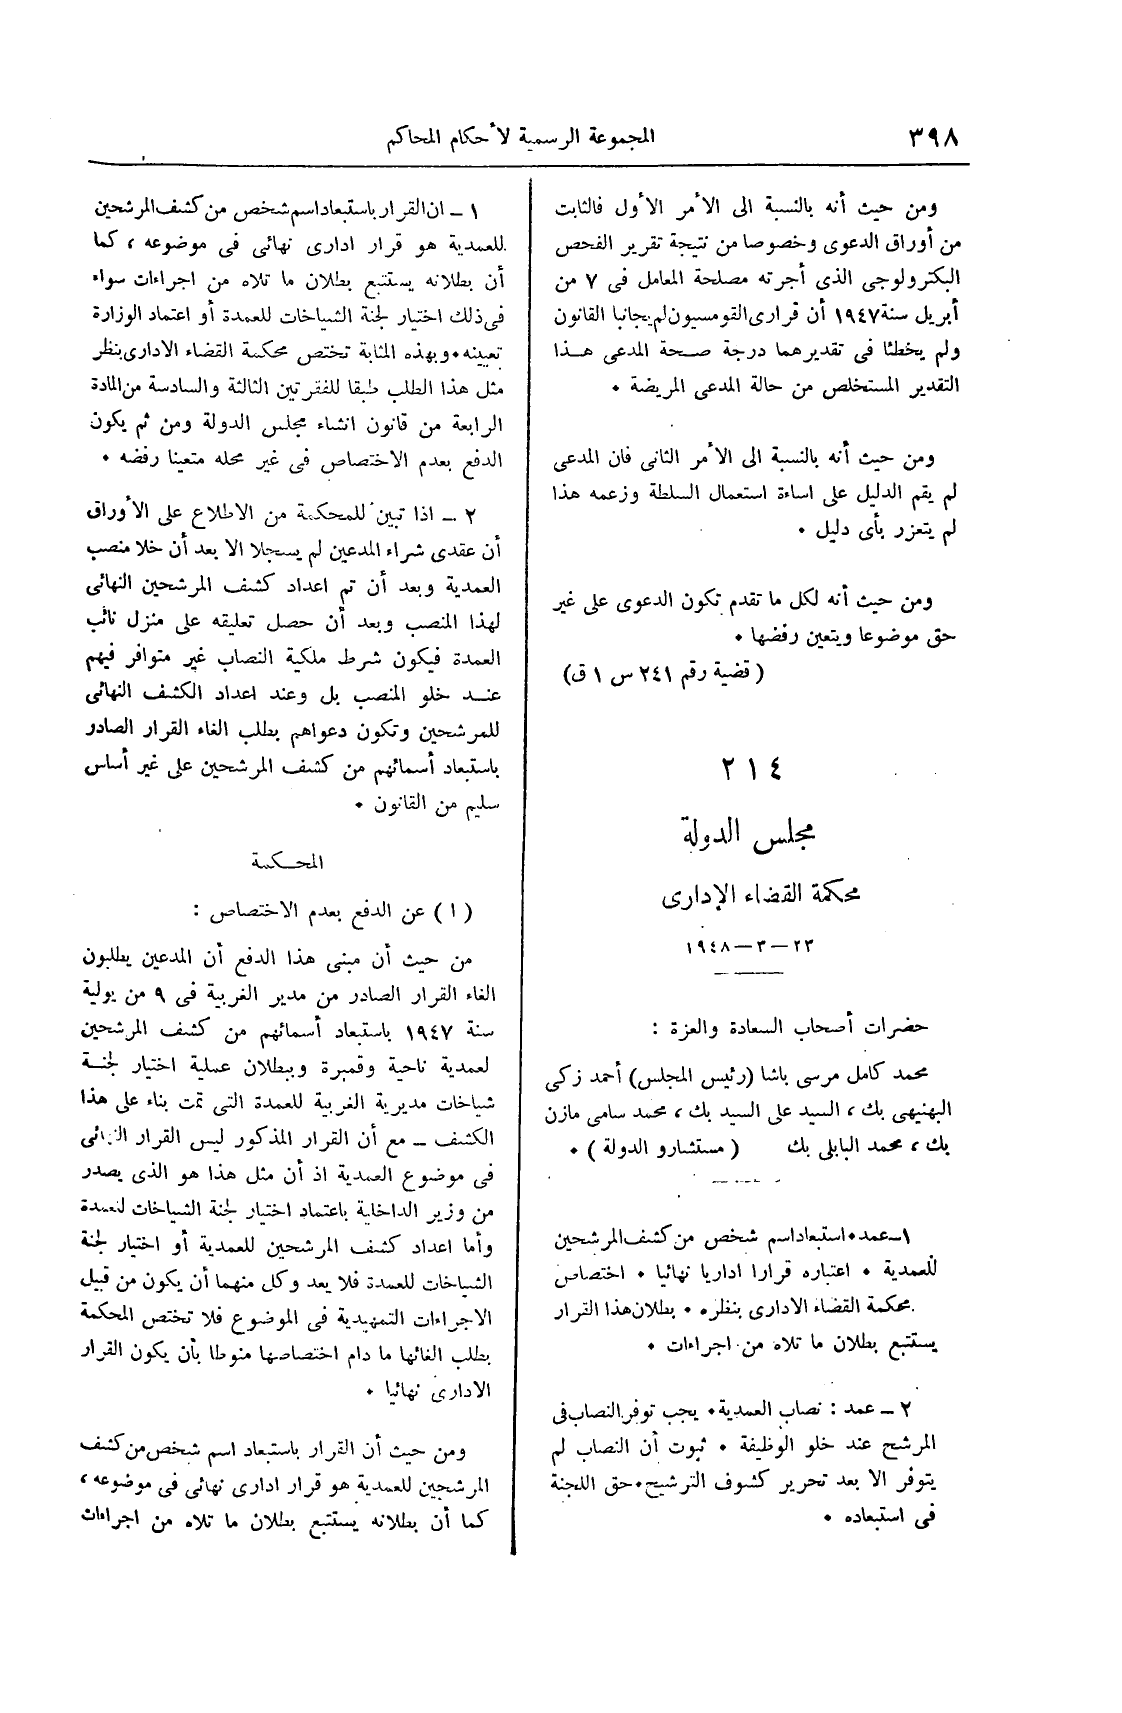 ٣٩٨
المجموعة الرسمية لأحكام المحاكم
ومن حيث أنه بالنسبة الى الأمر الأول فالثابت
من أوراق الدعوى وخصوصا من نتيجة تقرير الفحص
البكترولوجى الذى أجرته مصلحة المعامل فى ٧ من
أبريل سنة ١٩٤٧ أن قرارى القومسيون لم يجانبا القانون
ولم يخطئا فى تقديرهما درجة صحة المدعى هذا
التقدير المستخلص من حالة المدعى المريضة ٠
ومن حيث أنه بالنسبة الى الأمر الثانى فان المدعى
لم يقم الدليل على اساءة استعمال السلطة وزعمه هذا
لم يتعزر بأى دليل ٠
ومن حيث أنه لكل ما تقدم تكون الدعوى على غير
حق موضوعا ويتعين رفضها ٠
( قضية رقم ٢٤١ س ١ ق)
٢١٤
مجلس الدولة
محكمة القضاء الإدارى
٢٣ – ٣ – ١٩٤٨
حضرات أصحاب السعادة والعزة :
محمد كامل مرسى باشا (رئيس المجلس) أحمد زكى
البهنيهى بك ، السيد على السيد بك ، محمد سامى مازن
بك ، محمد البابلى بك ( مستشارو الدولة ) ٠
١ــ عمد ٠ استبعاد اسم شخص من كشف المرشحين
للعمدية ٠ اعتباره قرارا اداريا نهائيا ٠ اختصاص
محكمة القضاء الادارى بنظره ٠ بطلان هذا القرار
يستتبع بطلان ما تلاه من اجراءات ٠
٢ ــ عمد : نصاب العمدية ٠ يجب توفر النصاب فى
المرشح عند خلو الوظيفة ٠ ثبوت أن النصاب لم
يتوفر الا بعد تحرير كشوف الترشيح ٠ حق اللجنة
فى استبعاده ٠
١ ــ ان القرار باستبعاد اسم شخص من كشف المرشحين
للعمدية هو قرار ادارى نهائى فى موضوعه ، كما
أن بطلانه يستتبع بطلان ما تلاه من اجراءات سواء
فى ذلك اختيار لجنة الشياخات للعمدة أو اعتماد الوزارة
تعيينه ٠ وبهذه المثابة تختص محكمة القضاء الادارى بنظر
مثل هذا الطلب طبقا للفقرتين الثالثة والسادسة من المادة
الرابعة من قانون انشاء مجلس الدولة ومن ثم يكون
الدفع بعدم الاختصاص فى غير محله متعينا رفضه ٠
٢ ــ اذا تبين للمحكمة من الاطلاع على الأوراق
أن عقدى شراء المدعين لم يسجلا الا بعد أن خلا منصب
العمدية وبعد أن تم اعداد كشف المرشحين النهائى
لهذا المنصب وبعد أن حصل تعليقه على منزل نائب
العمدة فيكون شرط ملكية النصاب غير متوافر فيهم
عند خلو المنصب بل وعند اعداد الكشف النهائى
للمرشحين وتكون دعواهم بطلب الغاء القرار الصادر
باستبعاد أسمائهم من كشف المرشحين على غير أساس
سليم من القانون ٠
المحكمة
( ١ ) عن الدفع بعدم الاختصاص :
من حيث أن مبنى هذا الدفع أن المدعين يطلبون
الغاء القرار الصادر من مدير الغربية فى ٩ من يولية
سنة ١٩٤٧ باستبعاد أسمائهم من كشف المرشحين
لعمدية ناحية وقمبرة وببطلان عملية اختيار لجنة
شياخات مديرية الغربية للعمدة التى تمت بناء على هذا
الكشف ــ مع أن القرار المذكور ليس القرار النهائى
فى موضوع العمدية اذ أن مثل هذا هو الذى يصدر
من وزير الداخلية باعتماد اختيار لجنة الشياخات للعمدة
وأما اعداد كشف المرشحين للعمدية أو اختيار لجنة
الشياخات للعمدة فلا يعد وكل منهما أن يكون من قبيل
الاجراءات التمهيدية فى الموضوع فلا تختص المحكمة
بطلب الغائها ما دام اختصاصها منوطا بأن يكون القرار
الادارى نهائيا ٠
ومن حيث أن القرار باستبعاد اسم شخص من كشف
المرشحين للعمدية هو قرار ادارى نهائى فى موضوعه ،
كما أن بطلانه يستتبع بطلان ما تلاه من اجراءات